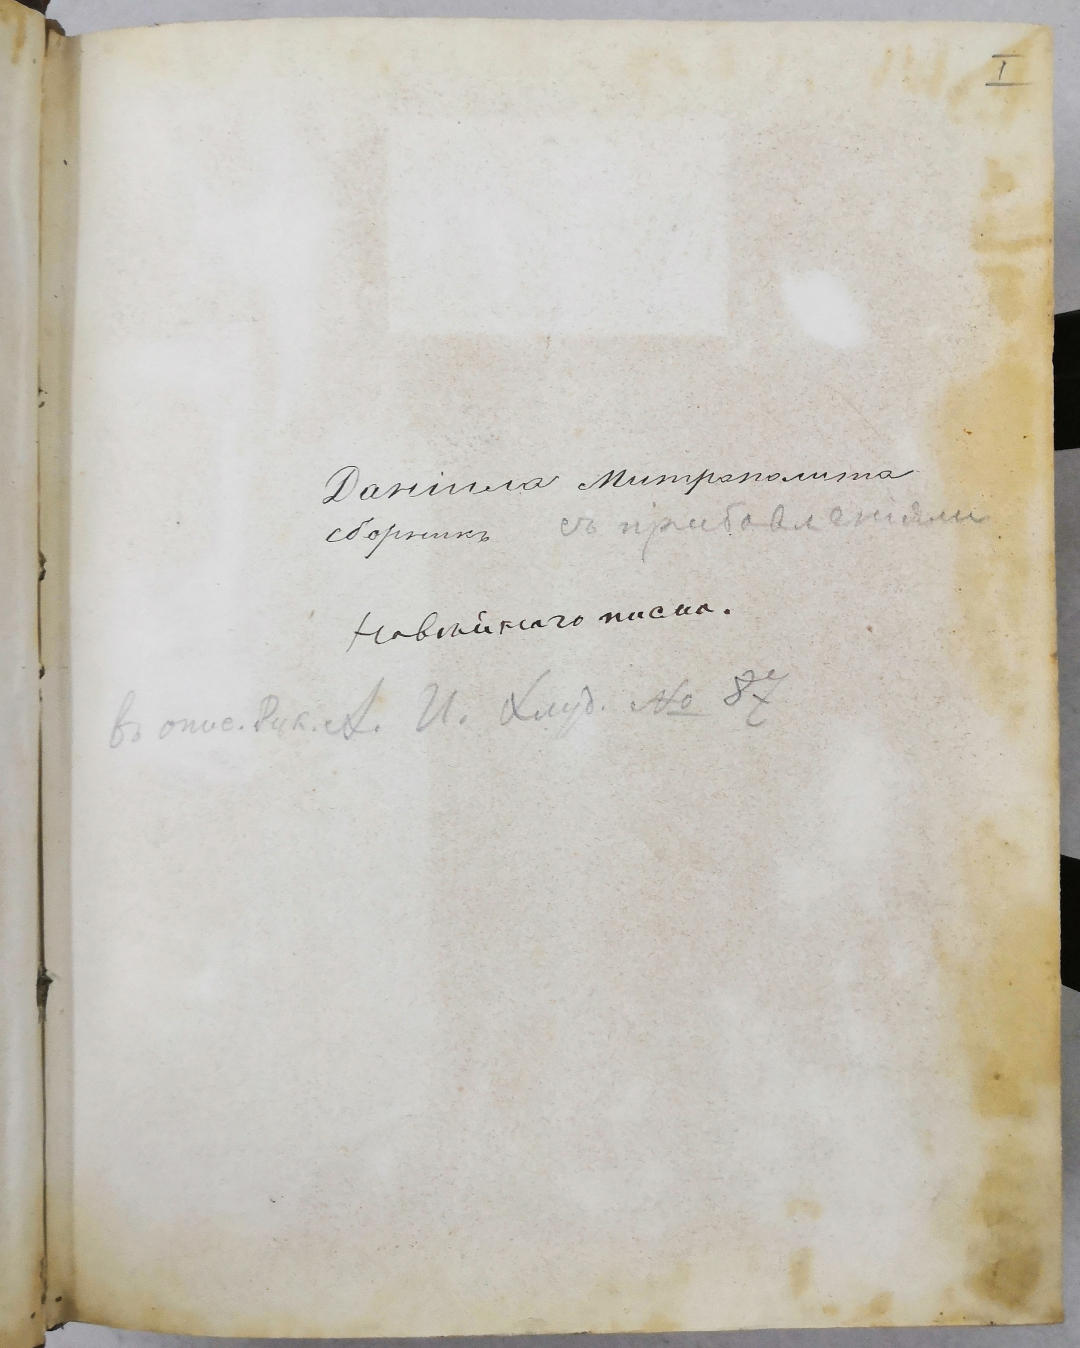 I
Даніила Митрополита
сборникъ съ прибавленіями
Новѣйшаго писма.
въ опис. Рук. А. И. Хлуд. № 87